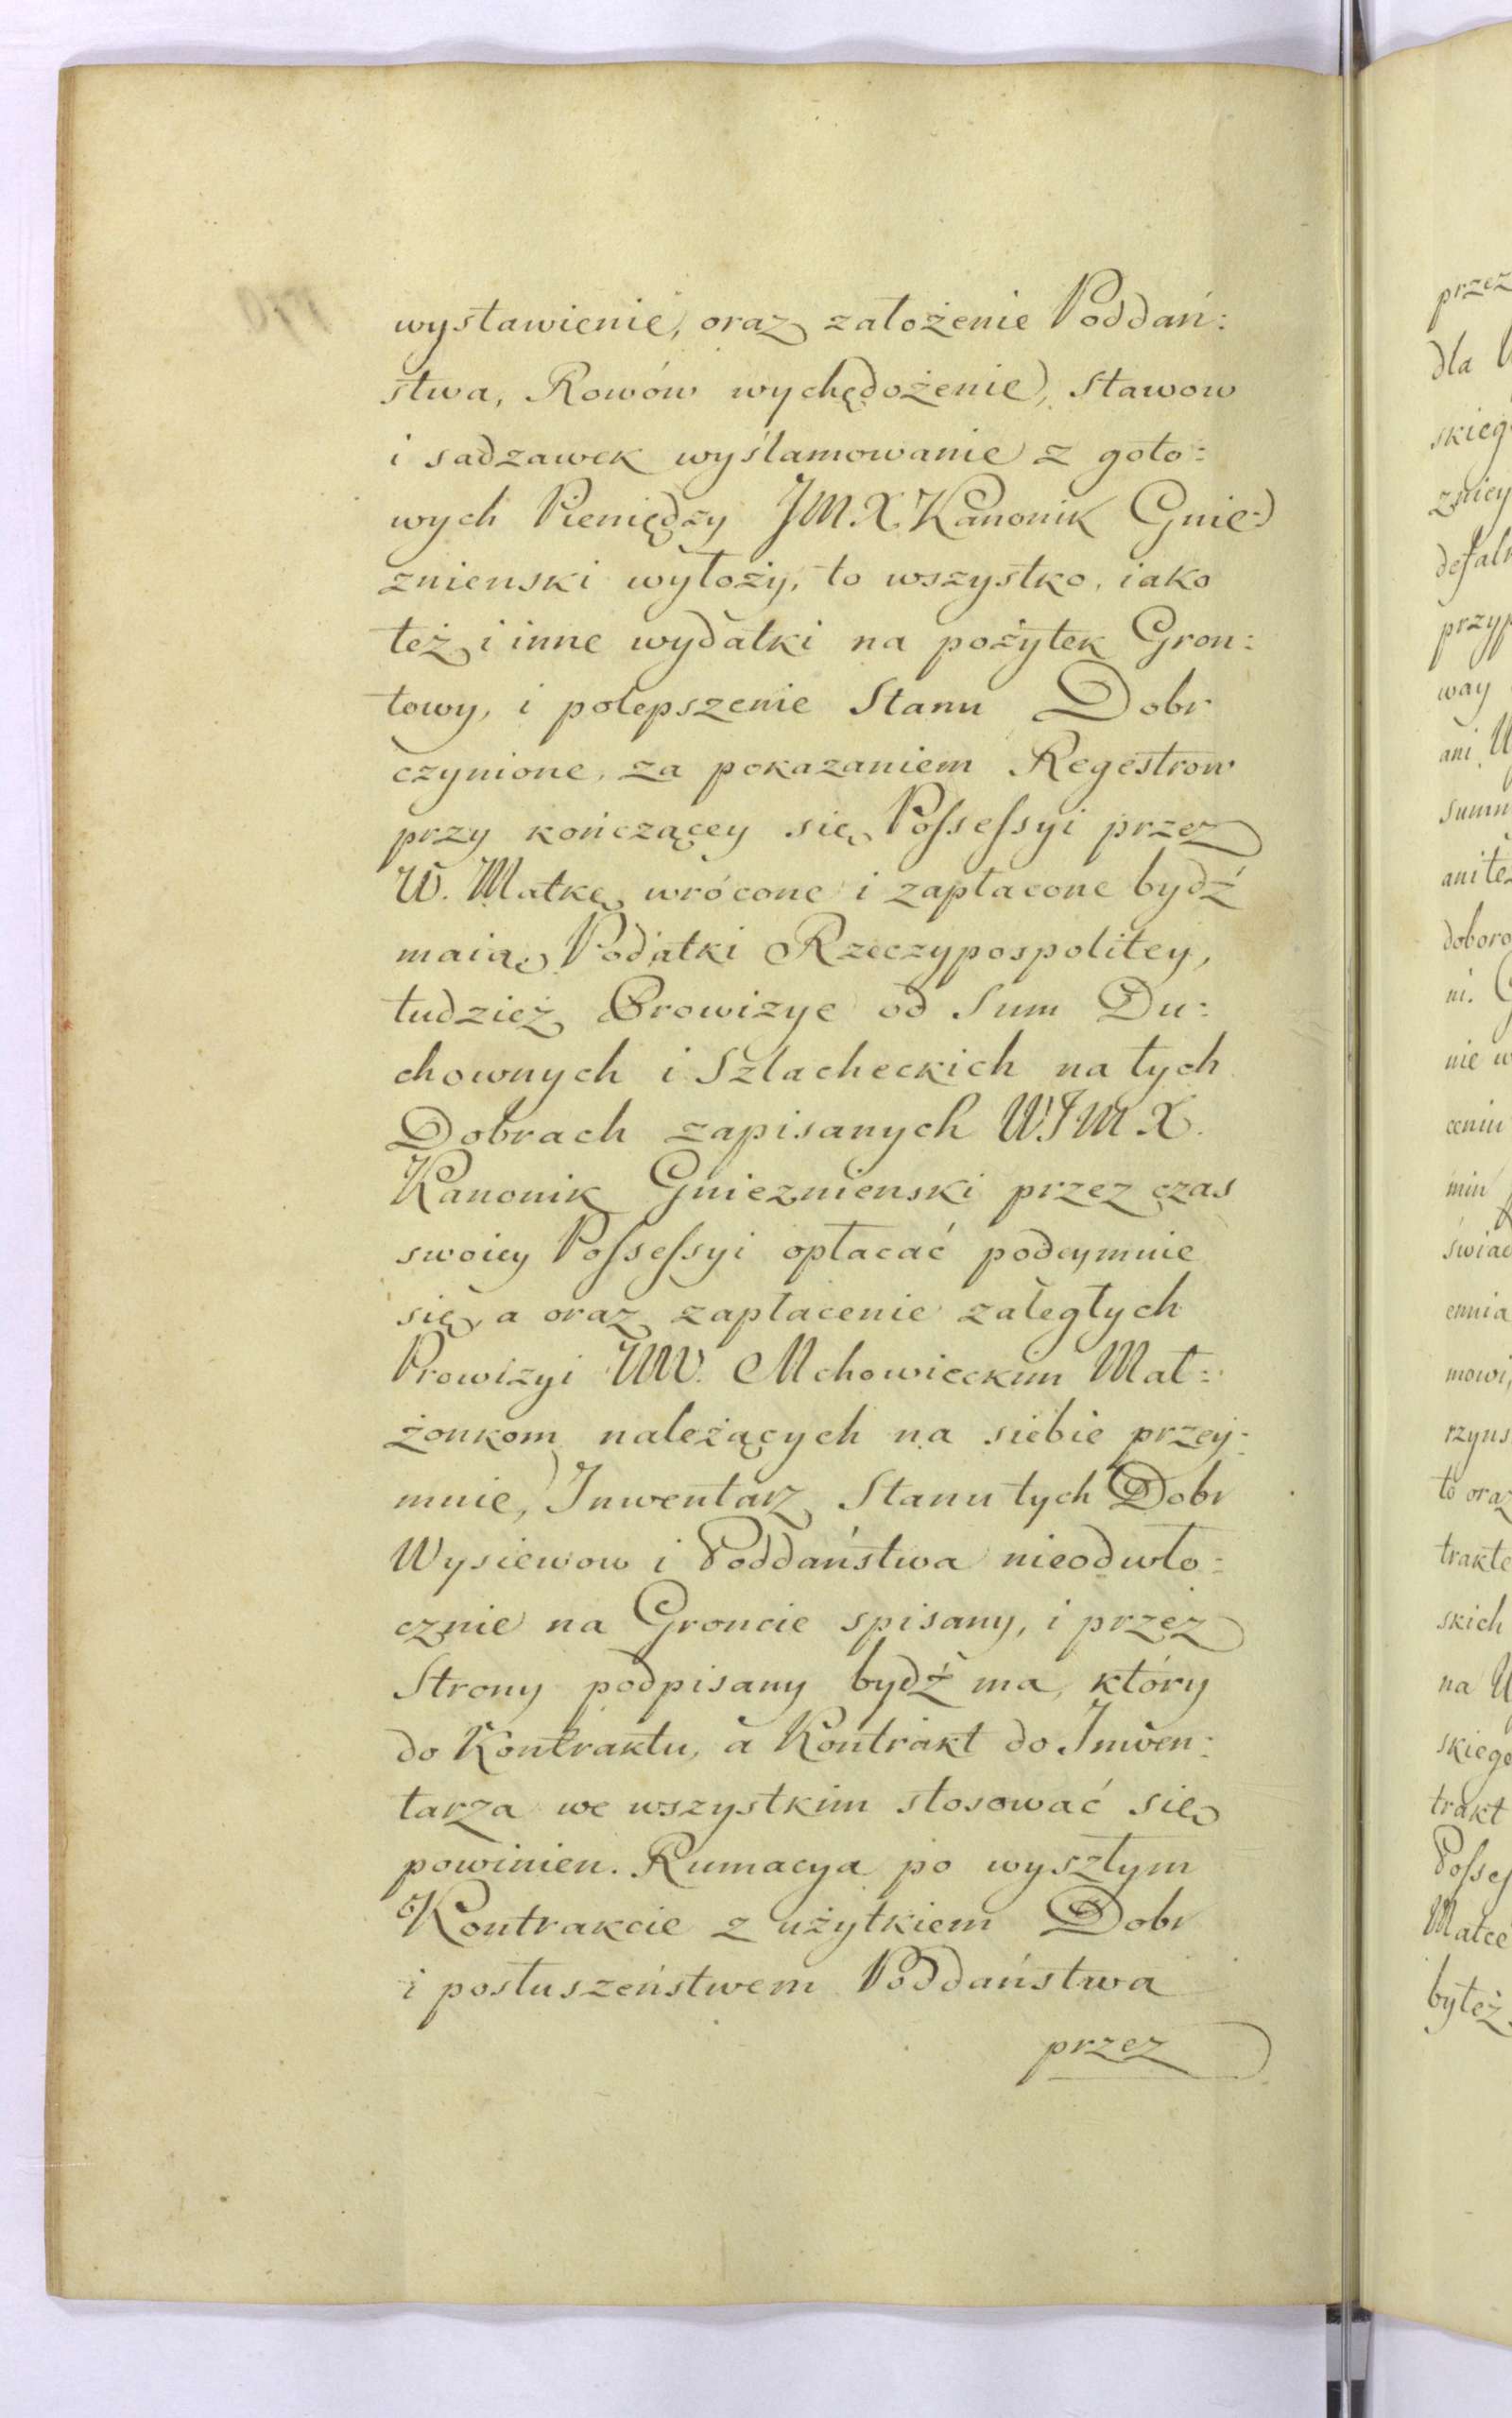 wystawienie, oraz założenie Poddań:
stwa, Rowów wychędożenie, Stawow
i sadzawek wyślamowanie z goto:
wych Pieniędzy JMX. Kanonik Gnie:
znienski wyłoży, to wszystko, iako
też i inne wydatki na pożytek Gron:
towy, i polepszenie Stanu Dobr
czynione, za pokazaniem Regestrow
przy kończącey się Possessyi przez
W. Matkę wrócone i zapłacone bydź
maią. Podatki Rzeczypospolitey,
tudzież Prowizye od Sum Du:
chownych i Szlacheckich na tych
Dobrach zapisanych WJMX.
Kanonik Gnieznienski przez czas
swoiey Possessyi opłacać podeymuie
się, a oraz zapłacenie zaległych
Prowizyi UWW. Mchowieckim Mał:
żonkom należących na siebie przey:
muie, Inwentarz Stanu tych Dobr
Wysiewow i Poddaństwa nieodwło:
cznie na Groncie spisany, i przez
Strony podpisany bydź ma, który
do Kontraktu, a Kontrakt do Inwen:
tarza we wszystkim stosować się
powinien. Rumacya po wyszłym
Kontrakcie z użytkiem Dobr
i posłuszeństwem Poddaństwa
przez
przez
dla
skieg
zniey
defal
przyp
way
ani
summ
ani te
doboro
ni.
nie w
ceniu
min
świad
mowi,
to oraz
trakte
skich
na
skiego
trakt
Posses
Matce
byłeż